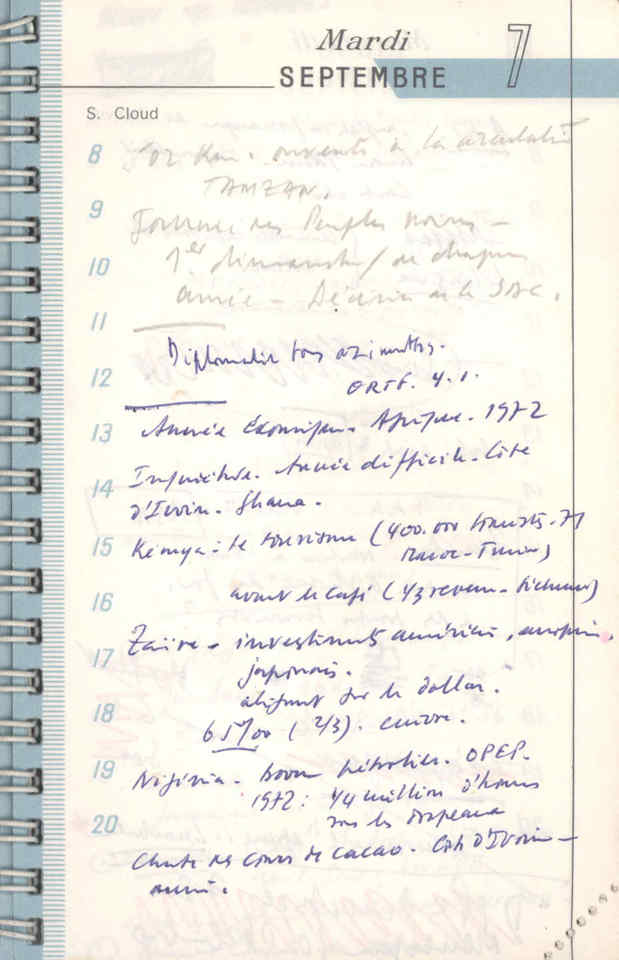 Mardi 7
SEPTEMBRE
S. Cloud
8
Km. ouverts à la circulation
TAMZAN.
9
Journée des Peuples noirs -
10
1er dimanche de chaque
année - Décision de la
11
Diplomatie tous azimuths.
12
ORTF. 4.1.
13
Année économique. Afrique. 1972
Inquiétude. Année difficile. Côte
14
d'Ivoire. Ghana.
15
Kénya : le tourisme (400.000 tourists. 71
Maroc - Tunisie)
16
avant le café (1/3 revenu -
Zaïre - investiments américains, européens,
17
japonais.
alignement sur le dollar.
18
65%00 (2/3). cuivre.
19
Nigéria - boom pétrolier. OPEP.
1972 : 1/4 million d'hommes
20
sous les drapeaux
Chute des cours de cacao. Côte d'Ivoire -